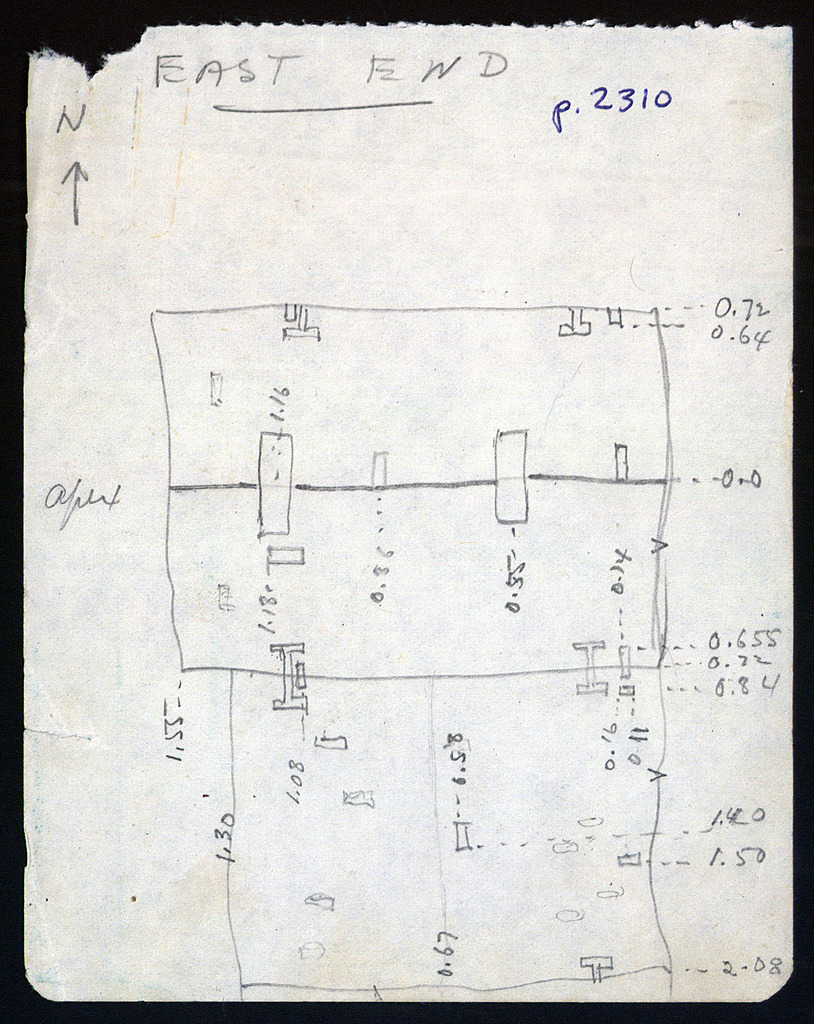 EAST END
p. 2310
N
0.72
0.64
1.16
apex
0.0
0.86
0.55
0.14
1.18
0.655
0.72
0.84
1.55
1.08
0.58
0.16
0.11
1.30
1.50
0.67
2.08